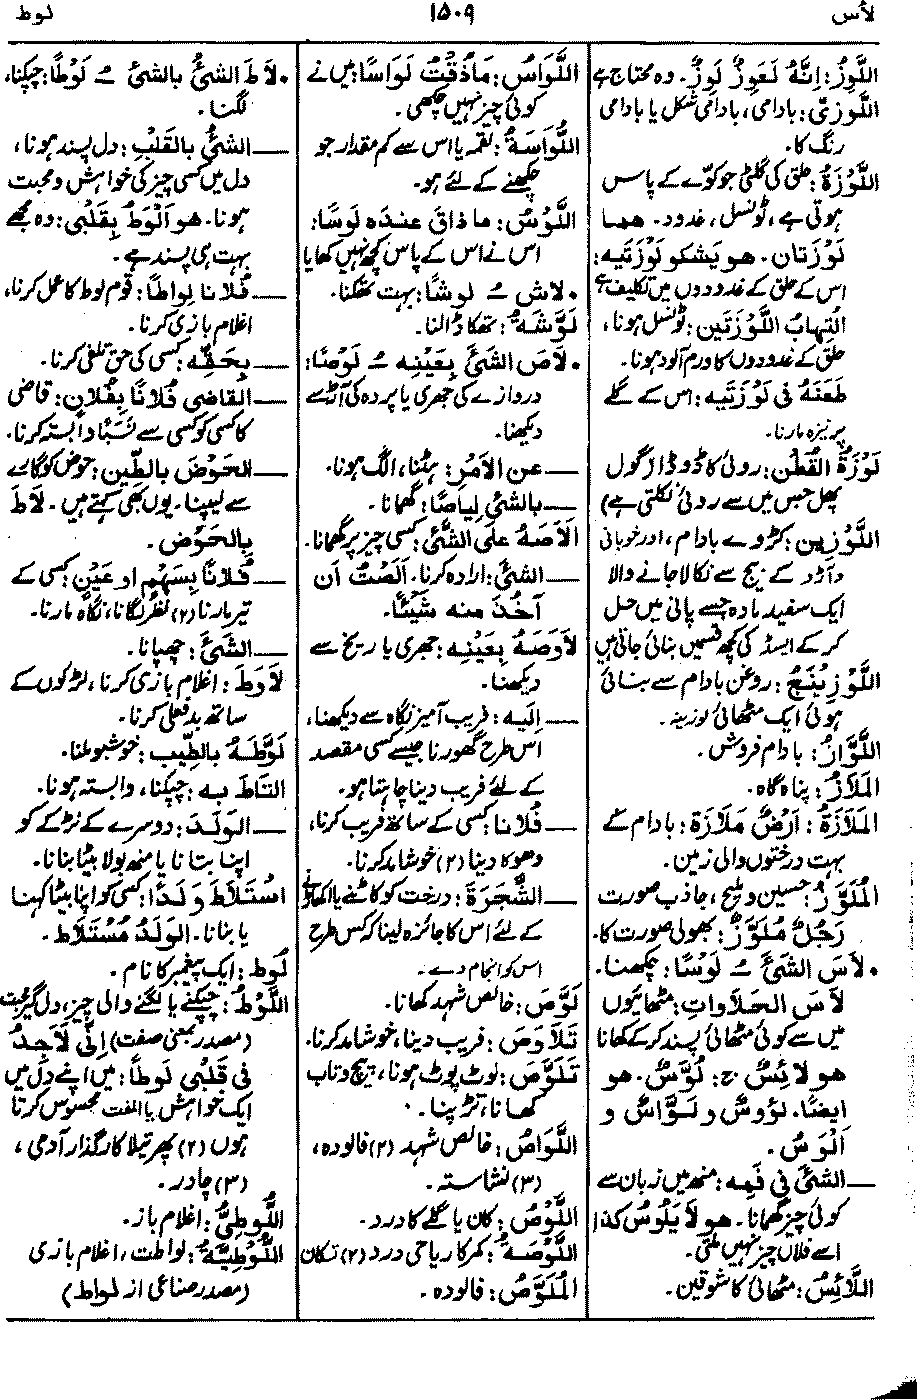 لأس
۱۵۰۹
لوط
اللَّوْزُ: اِنَّهُ لَعَوِزٌ لَوِزٌ. وہ محتاج ہے
اللَّوْزِيُّ: بادامی، بادامی شکل یا بادامی
رنگ کا.
اللَّوْزَةُ: حلق کی گلٹی جو کوّے کے پاس
ہوتی ہے، ٹونسل، غدود. هما
لَوْزَتان. هو يشكو لَوْزَتَيه:
اس کے حلق کے غدودوں میں تکلیف ہے
اِلتِهابُ اللَّوْزَتَين: ٹونسل ہونا،
حلق کے غدودوں کا ورم آلود ہونا.
طَعَنَهُ فى لَوْزَتَيه: اس کے گلے
پر نیزہ مارنا.
لَوْزَةُ القُطْن: روئی کا ڈوڈا (گول
پھل جس میں سے روئی نکلتی ہے)
اللَّوْزِين: کڑوے بادام، اور خوبانی
وآڑو کے بیج سے نکالا جانے والا
ایک سفید مادہ جسے پانی میں حل
کر کے ایسڈ کی کچھ قسمیں بنائی جاتی ہیں
اللَّوْزِينَجُ: روغن بادام سے بنائی
ہوئی ایک مٹھائی لوزینہ.
اللَّوَّازُ: بادام فروش.
المَلاَزُ: پناہ گاہ.
المَلَازَةُ: اَرْضٌ مَلَازَة: بادام کے
بہت درختوں والی زمین.
المُلَوَّزُ: حسین و ملیح، جاذب صورت
رَجُلٌ مُلَوَّزٌ: بھولی صورت کا.
•لاَسَ الشئَ ـُـ لَوْسًا: چکھنا.
لاَسَ الحَلاَواتِ: مٹھائیوں
میں سے کوئی مٹھائی پسند کر کے کھانا
هو لائِسٌ ج: لُوَّسٌ. هو
ايضًا. لَؤُوسٌ و لَوَّاسٌ و
اَلْوَسُ.
ــــ الشئَ فى فَمِه: منھ میں زبان سے
کوئی چیز گھمانا. هو لاَيَلُوسُ كذا
اسے فلاں چیز نہیں ملتی.
اللَّائِسُ: مٹھائی کا شوقین.
اللَّوَاسُ: مَاذُقْتُ لَوَاسًا: میں نے
کوئی چیز نہیں چکھی.
اللُّوَاسَةُ: لقمہ یا اس سے کم مقدار جو
چکھنے کے لئے ہو.
اللَّوْسُ: ما ذاقَ عنده لَوسًا:
اس نے اس کے پاس کچھ نہیں کھایا
•لاش ـُـ لوشًا: بہت تھکنا.
لَوَّشَهُ: تھکا ڈالنا.
•لاَصَ الشئَ بِعَيْنِه ـُـ لَوْصًا:
دروازے کی جھری یا پردہ کی آڑ سے
دیکھنا.
ــــ عن الاَمْرِ: ہٹنا، الگ ہونا.
ــــ بالشئِ لِياصًا: گھمانا.
اَلَاصَهُ على الشَّئِ: کسی چیز پر گھمانا.
ــــ الشئَ: ارادہ کرنا. اَلَصْتُ اَن
آخُذَ منه شَيْئًا.
لاَوَصَهُ بِعَيْنِه: جھری یا ریخ سے
دیکھنا.
ــــ اِلَيه: فریب آمیز نگاہ سے دیکھنا،
اس طرح گھورنا جیسے کسی مقصد
کے لئے فریب دینا چاہتا ہو.
ــــ فُلَانا: کسی کے ساتھ فریب کرنا،
دھوکا دینا (۲) خوشامد کرنا.
ــــ الشَّجَرَةَ: درخت کو کاٹنے یا اکھاڑنے
کے لئے اس کا جائزہ لینا کہ کس طرح
اس کو انجام دے.
لَوَّصَ: خالص شہد کھانا.
تَلَاوَصَ: فریب دینا، خوشامد کرنا.
تَلَوَّصَ: لوٹ پوٹ ہونا، پیچ و تاب
کھانا، تڑپنا.
اللَّوَاصُ: خالص شہد (۲) فالودہ،
(۳) نشاستہ.
اللَّوْصُ: کان یا گلے کا درد.
اللَّوْصَةُ: کمر کا ریاحی درد (۲) تکان
المُلَوَّصُ: فالودہ.
•لاَطَ الشئُ بالشئِ ـُـ لَوْطًا: چپکنا،
لگنا.
ــــ الشئُ بالقَلْبِ: دل پسند ہونا،
دل میں کسی چیز کی خواہش و محبت
ہونا. هو اَلْوَطُ بِقَلْبِى: وہ مجھے
بہت ہی پسند ہے.
ــــ فُلَانا لِواطًا: قوم لوط کا عمل کرنا،
اغلام بازی کرنا.
ــــ بِحَقِّه: کسی کی حق تلفی کرنا.
ــــ القاضى فُلَانًا بِفُلَانٍ: قاضی
کا کسی کو کسی سے نسبًا وابستہ کرنا.
ــــ الحَوْضَ بالطِّينِ: حوض کو گارے
سے لیپنا. یوں بھی کہتے ہیں. لاَطَ
بِالحَوْضِ.
ــــ فُلَانًا بِسَهْمٍ او عَيْنٍ: کسی کے
تیر مارنا (۲) نظر لگانا، نگاہ مارنا.
ــــ الشئَ: چھپانا.
لَاوَطَ: اغلام بازی کرنا، لڑکوں کے
ساتھ بد فعلی کرنا.
لَوَّطَهُ بالطِّيبِ: خوشبو ملنا.
التَاطَ به: چپکنا، وابستہ ہونا.
ــــ الوَلَدَ: دوسرے کے لڑکے کو
اپنا بتانا یا منھ بولا بیٹا بنانا.
اسْتَلَاطَ وَلَدًا: کسی کو اپنا بیٹا کہنا
یا بنانا. الوَلَدُ مُسْتَلَاط.
لُوط: ایک پیغمبر کا نام.
اللَّوْطُ: چپکنے یا لگنے والی چیز، دل گیر محبت
(مصدر بمعنی صفت) اِنِّى لَاَجِدُ
فى قَلْبِى لَوطًا: میں اپنے دل میں
ایک خواہش یا الفت محسوس کرتا
ہوں (۲) پھرتیلا کارگذار آدمی،
(۳) چادر.
اللُّوطِىُّ: اغلام باز.
اللُّوطِيَّةُ: لواطت، اغلام بازی
(مصدر صناعی از لواط)